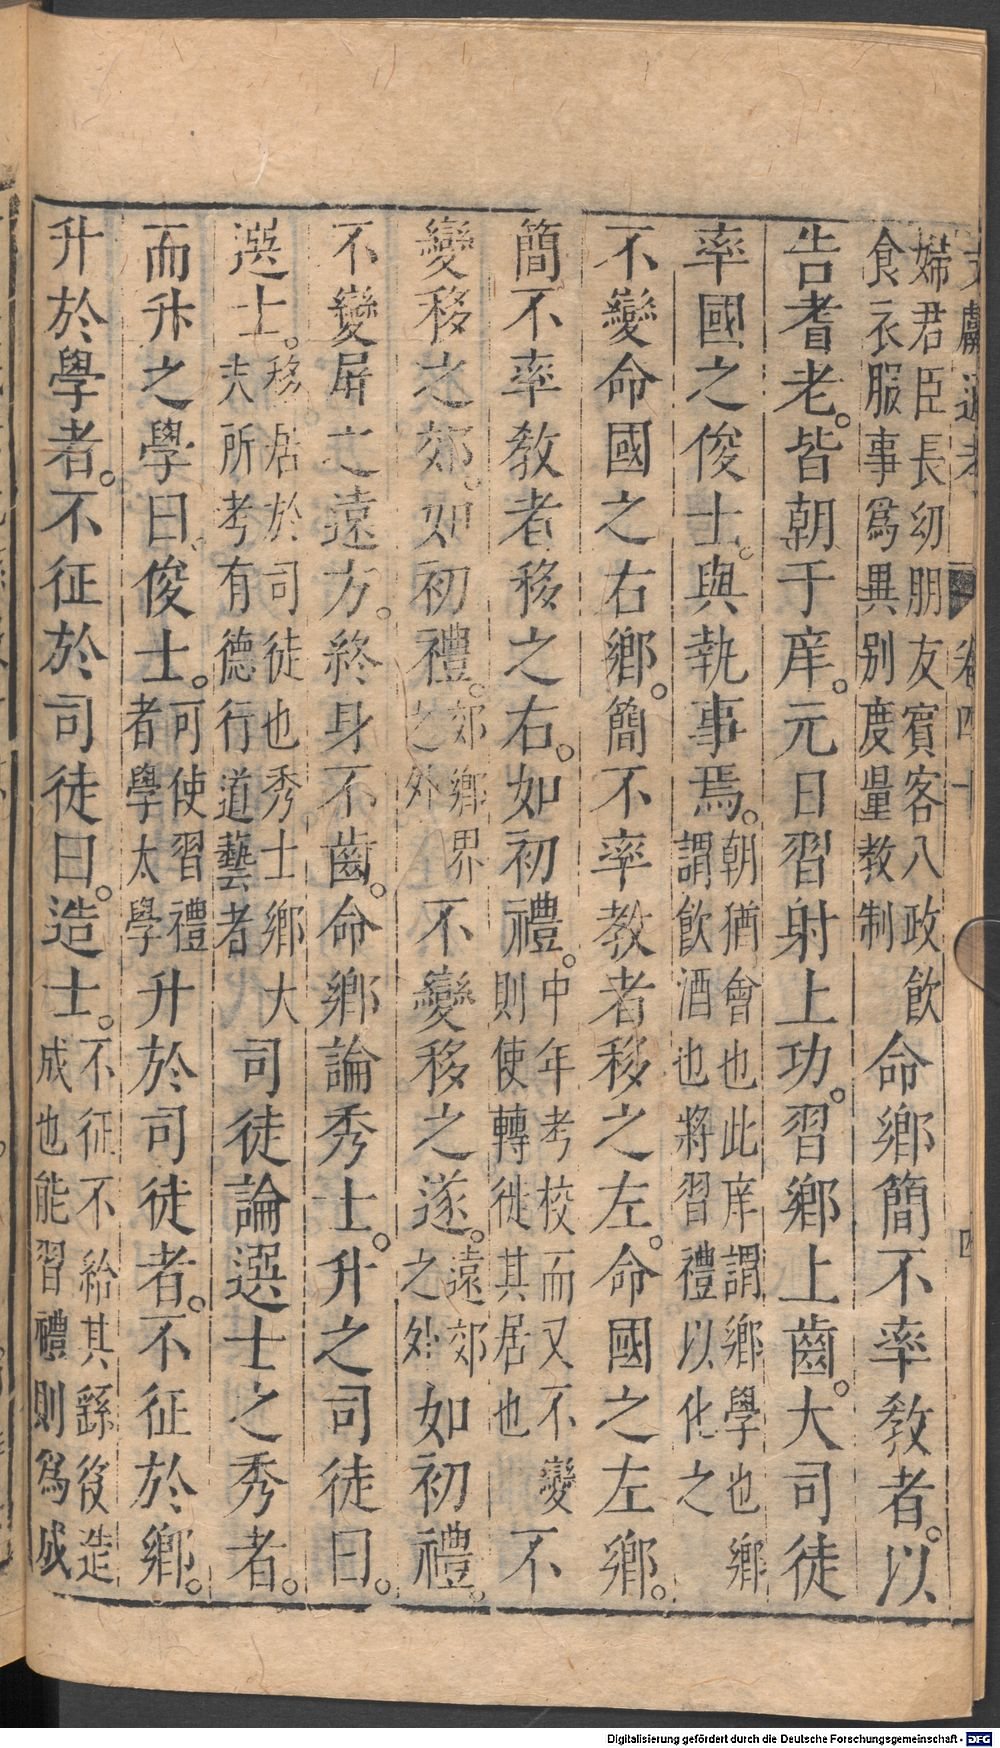 文獻通考 卷四十 四
婦君臣長幼朋友賓客八政飲
食衣服事爲異别度量教制
命鄉簡不率教者。以
告耆老。皆朝于庠。元日習射上功。習鄉上齒。大司徒
率國之俊士。與執事焉。
朝猶會也此庠謂鄉學也鄉
謂飲酒也將習禮以化之
不變命國之右鄉。簡不率教者移之左。命國之左鄉。
簡不率教者移之右。如初禮。
中年考校而又不變
則使轉徙其居也
不
變移之郊。如初禮。
郊鄉界
之外
不變移之遂。
遠郊
之外
如初禮。
不變屏之遠方。終身不齒。命鄉論秀士。升之司徒曰。
選士。
移居於司徒也秀士鄉大
夫所考有德行道藝者
司徒論選士之秀者。
而升之學曰俊士。
可使習禮
者學太學
升於司徒者。不征於鄉。
升於學者。不征於司徒曰。造士。
不征不給其繇役造
成也能習禮則爲成
Digitalisierung gefördert durch die Deutsche Forschungsgemeinschaft - DFG